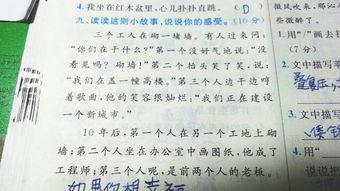 4.我坐在红木盆里,心儿扑扑直跳。 (D)
九、读读这则小故事,说说你的感受。(10分)
三个工人在砌一堵墙。有人过来问:
“你们在干什么?”第一个没好气地说:“没
看见吗?砌墙!”第二个抬头笑了笑,说:
“我们在盖一幢高楼。”第三个人边干边哼
着歌曲,他的笑容很灿烂:“我们正在建设
一个新城市。”
10年后,第一个人在另一个工地上砌
墙;第二个人坐在办公室中画图纸,他成了
工程师;第三个人呢,是前两个人的老板。
如果你想幸福
微风吹来,那
些微醉了。
2.用“/”画去括
(7分)
2.文中描写
3.文中描写
4.用“
说说把